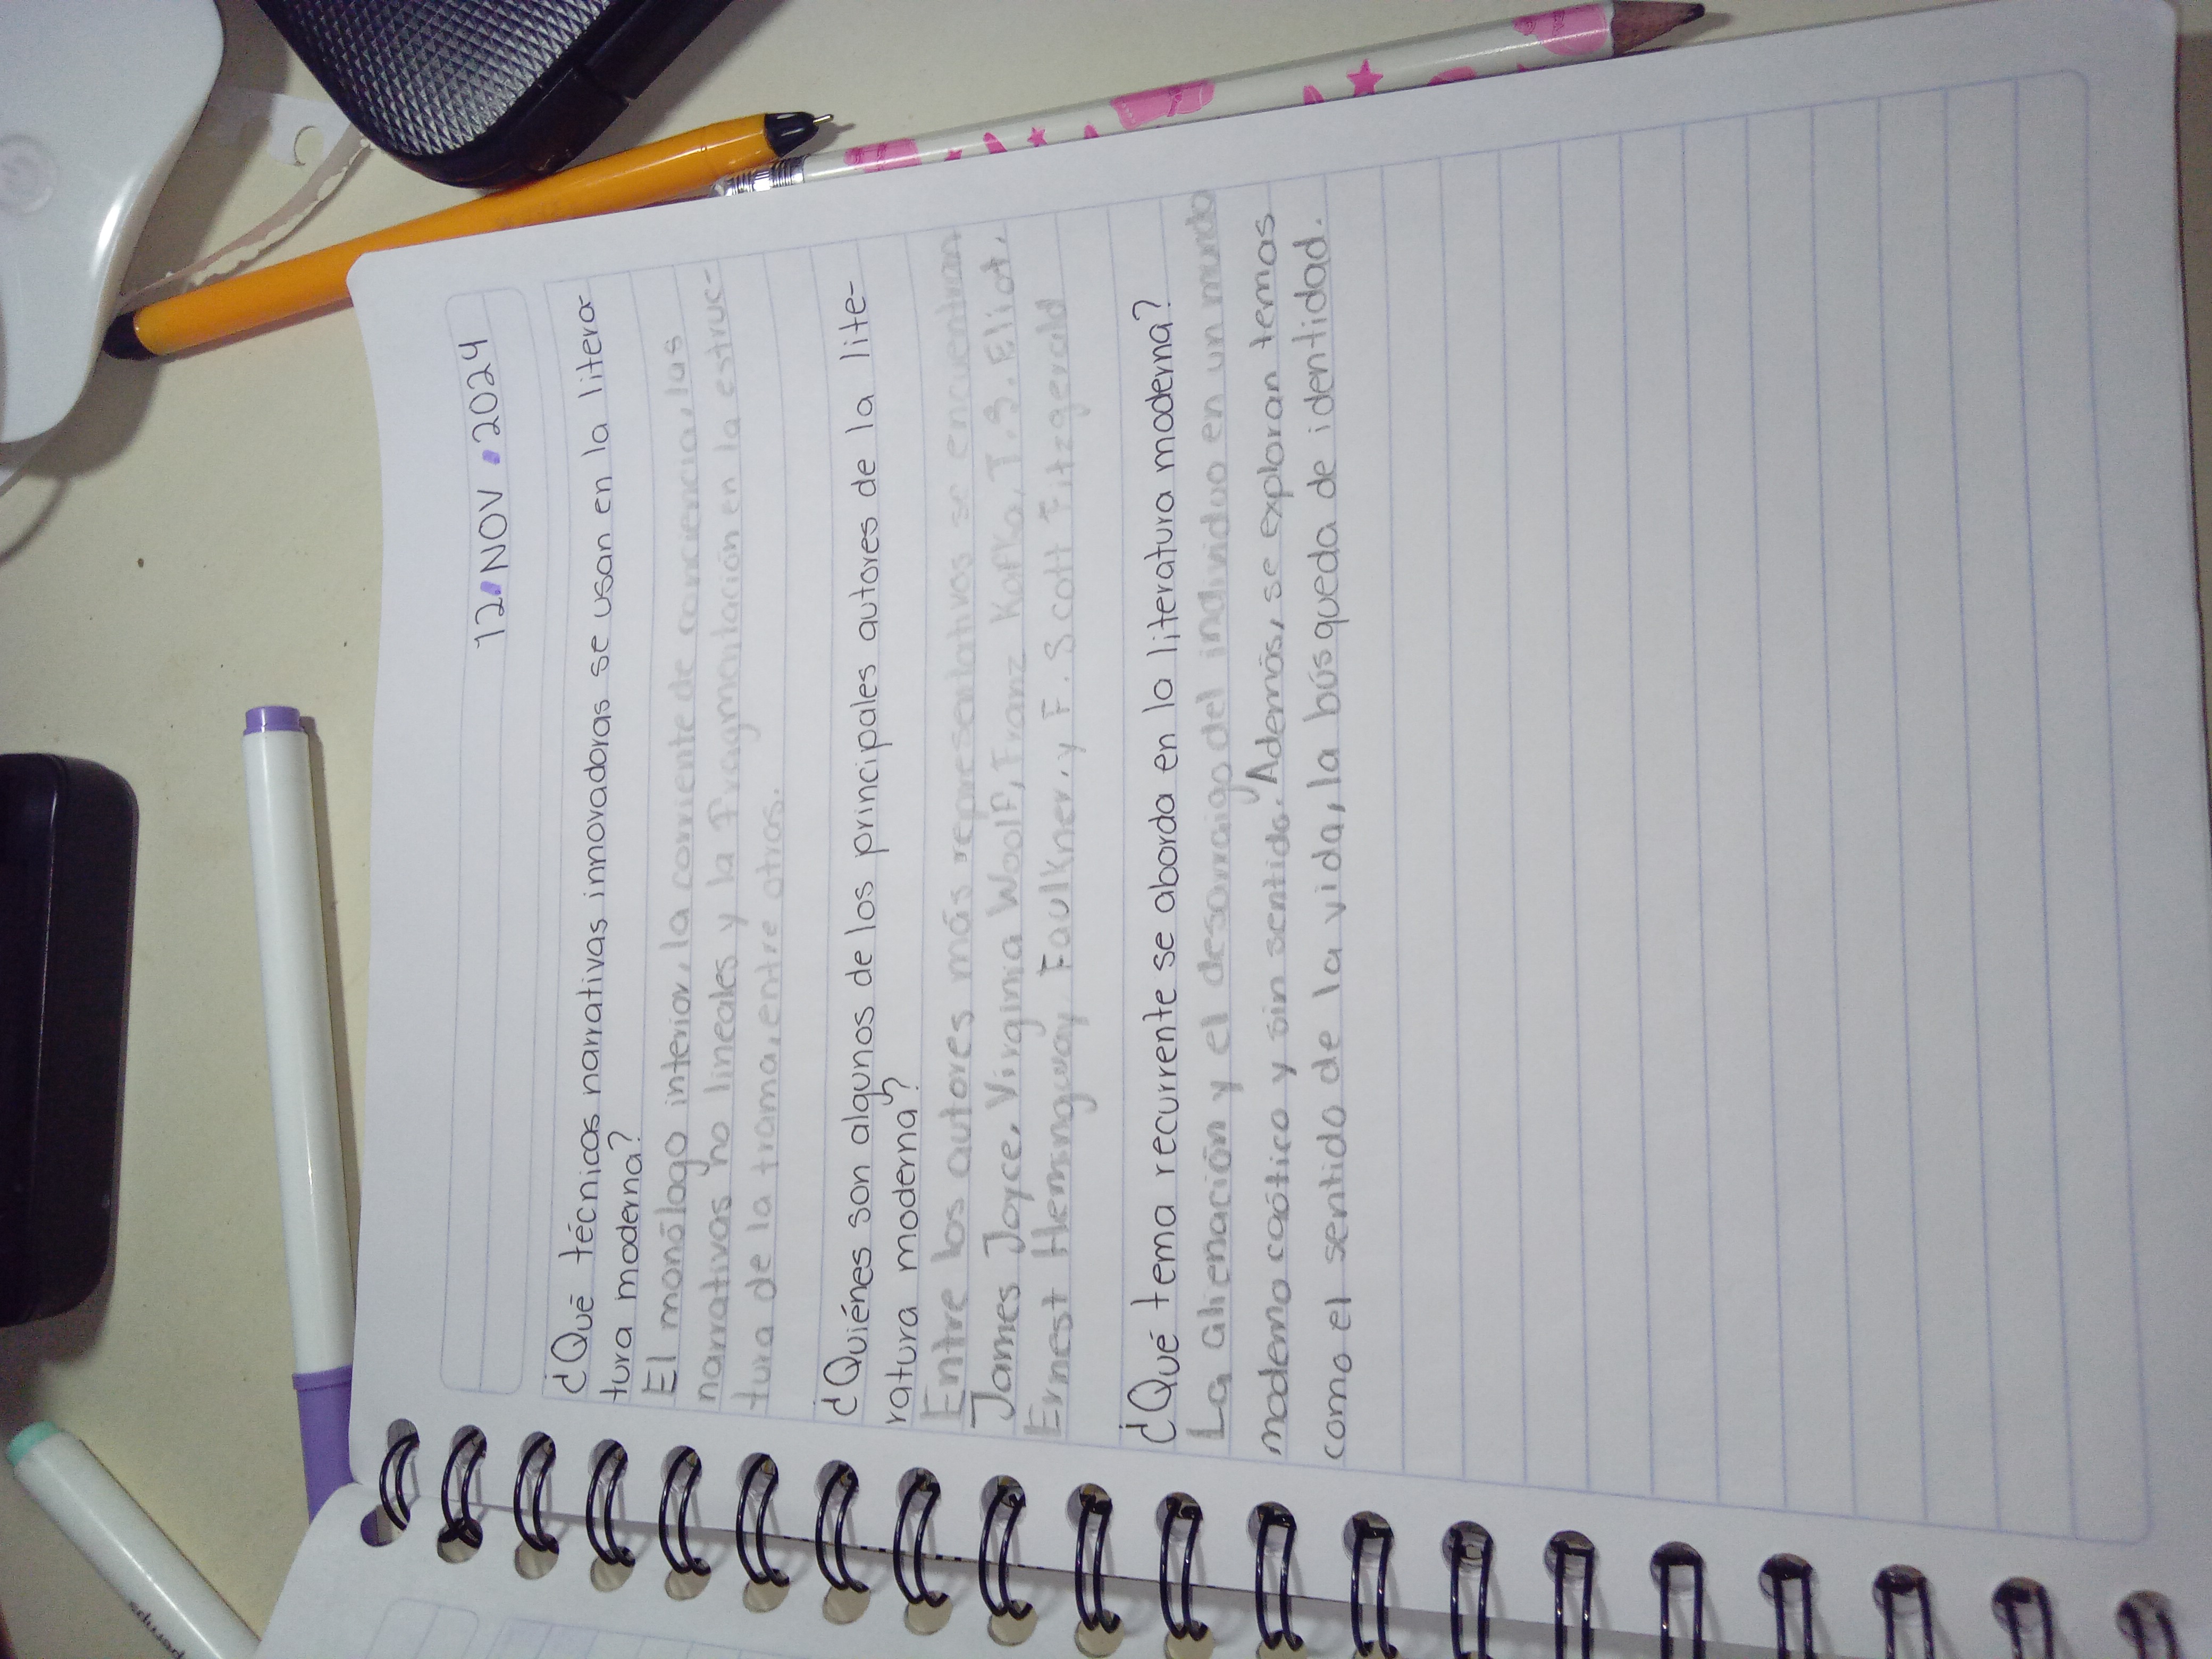 12•NOV•2024
¿Qué técnicas narrativas innovadoras se usan en la litera-
tura moderna?
El monólogo interior, la corriente de conciencia, las
narrativas no lineales y la fragmentación en la estruc-
tura de la trama, entre otros.
¿Quiénes son algunos de los principales autores de la lite-
ratura moderna?
Entre los autores más representativos se encuentran
James Joyce, Virginia Woolf, Franz Kafka, T.S. Eliot,
Ernest Hemingway, Faulkner, y F. Scott Fitzgerald
¿Qué tema recurrente se aborda en la literatura moderna?
La alienación y el desarraigo del individuo en un mundo
moderno caótico y sin sentido. Además, se exploran temas
como el sentido de la vida, la búsqueda de identidad.